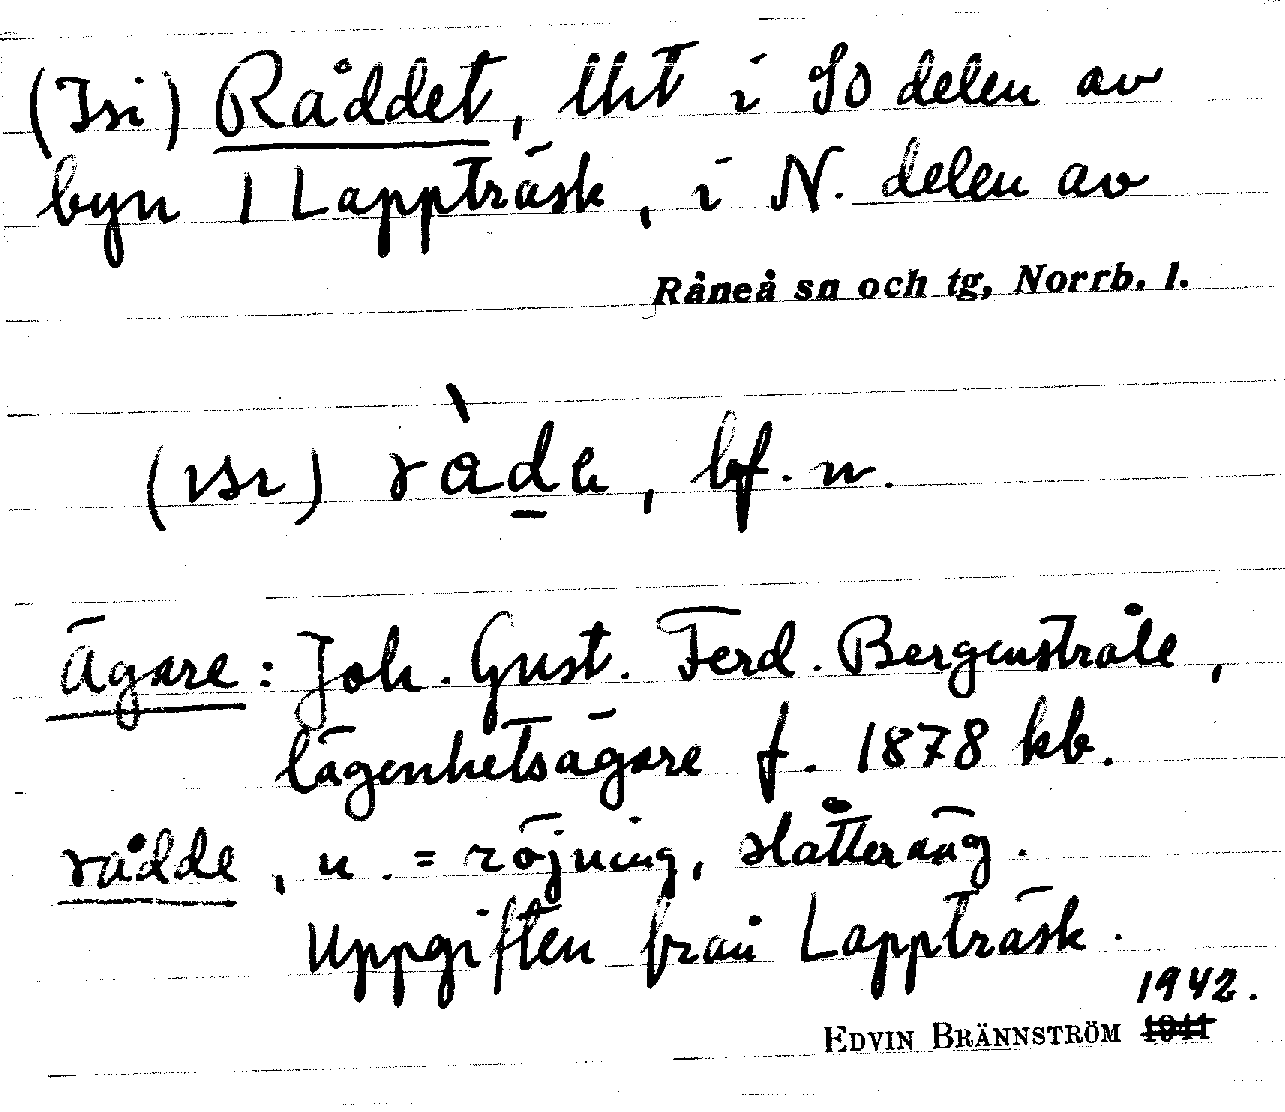 (Isi) Råddet, lht i SO delen av
byn 1 Lappträsk, i N. delen av
Råneå sn och tg, Norrb. l.
(ɪsɪ) ràdɛ, bf. n.
Ägare: Joh. Gust. Ferd. Bergenstråle,
lägenhetsägare f. 1878 kb.
rådde, n. = röjning, slåtteräng.
Uppgiften från Lappträsk.
1942.
EDVIN BRÄNNSTRÖM 1941